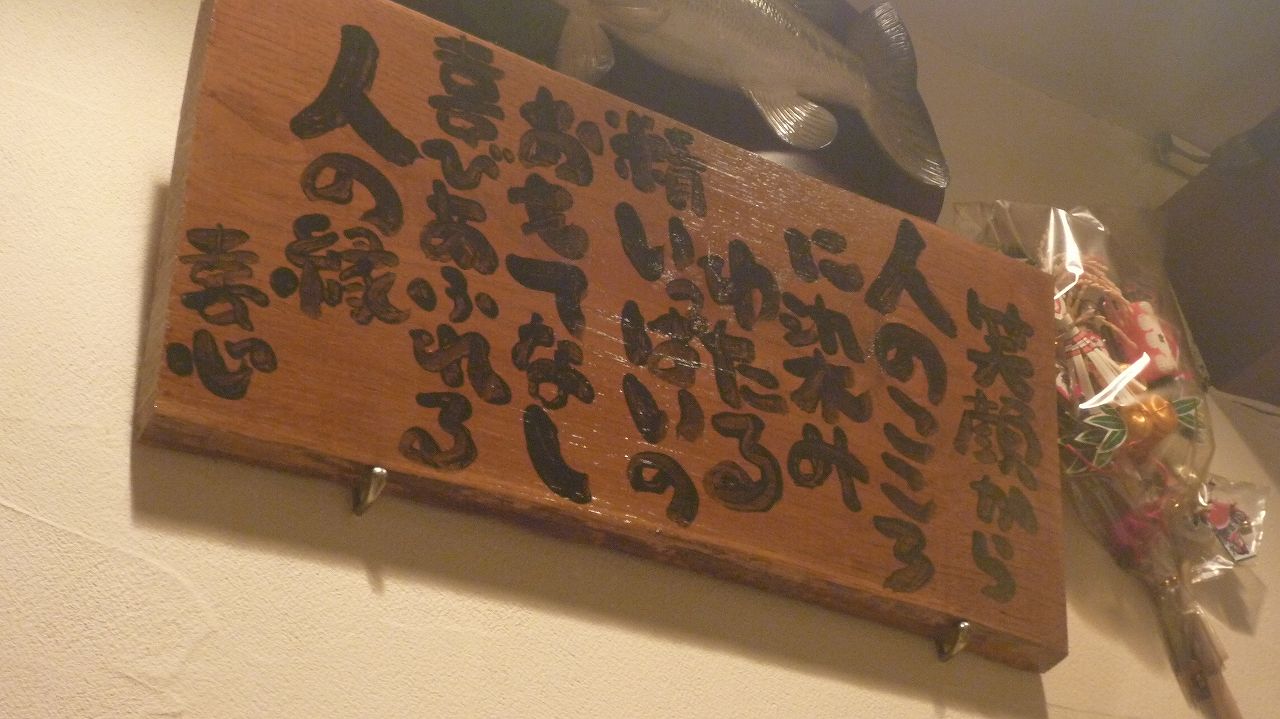 笑顔から
人のこころ
に れみ
ゆたる
精いっぱいの
おもてなし
喜びあふれる
人の縁
喜心